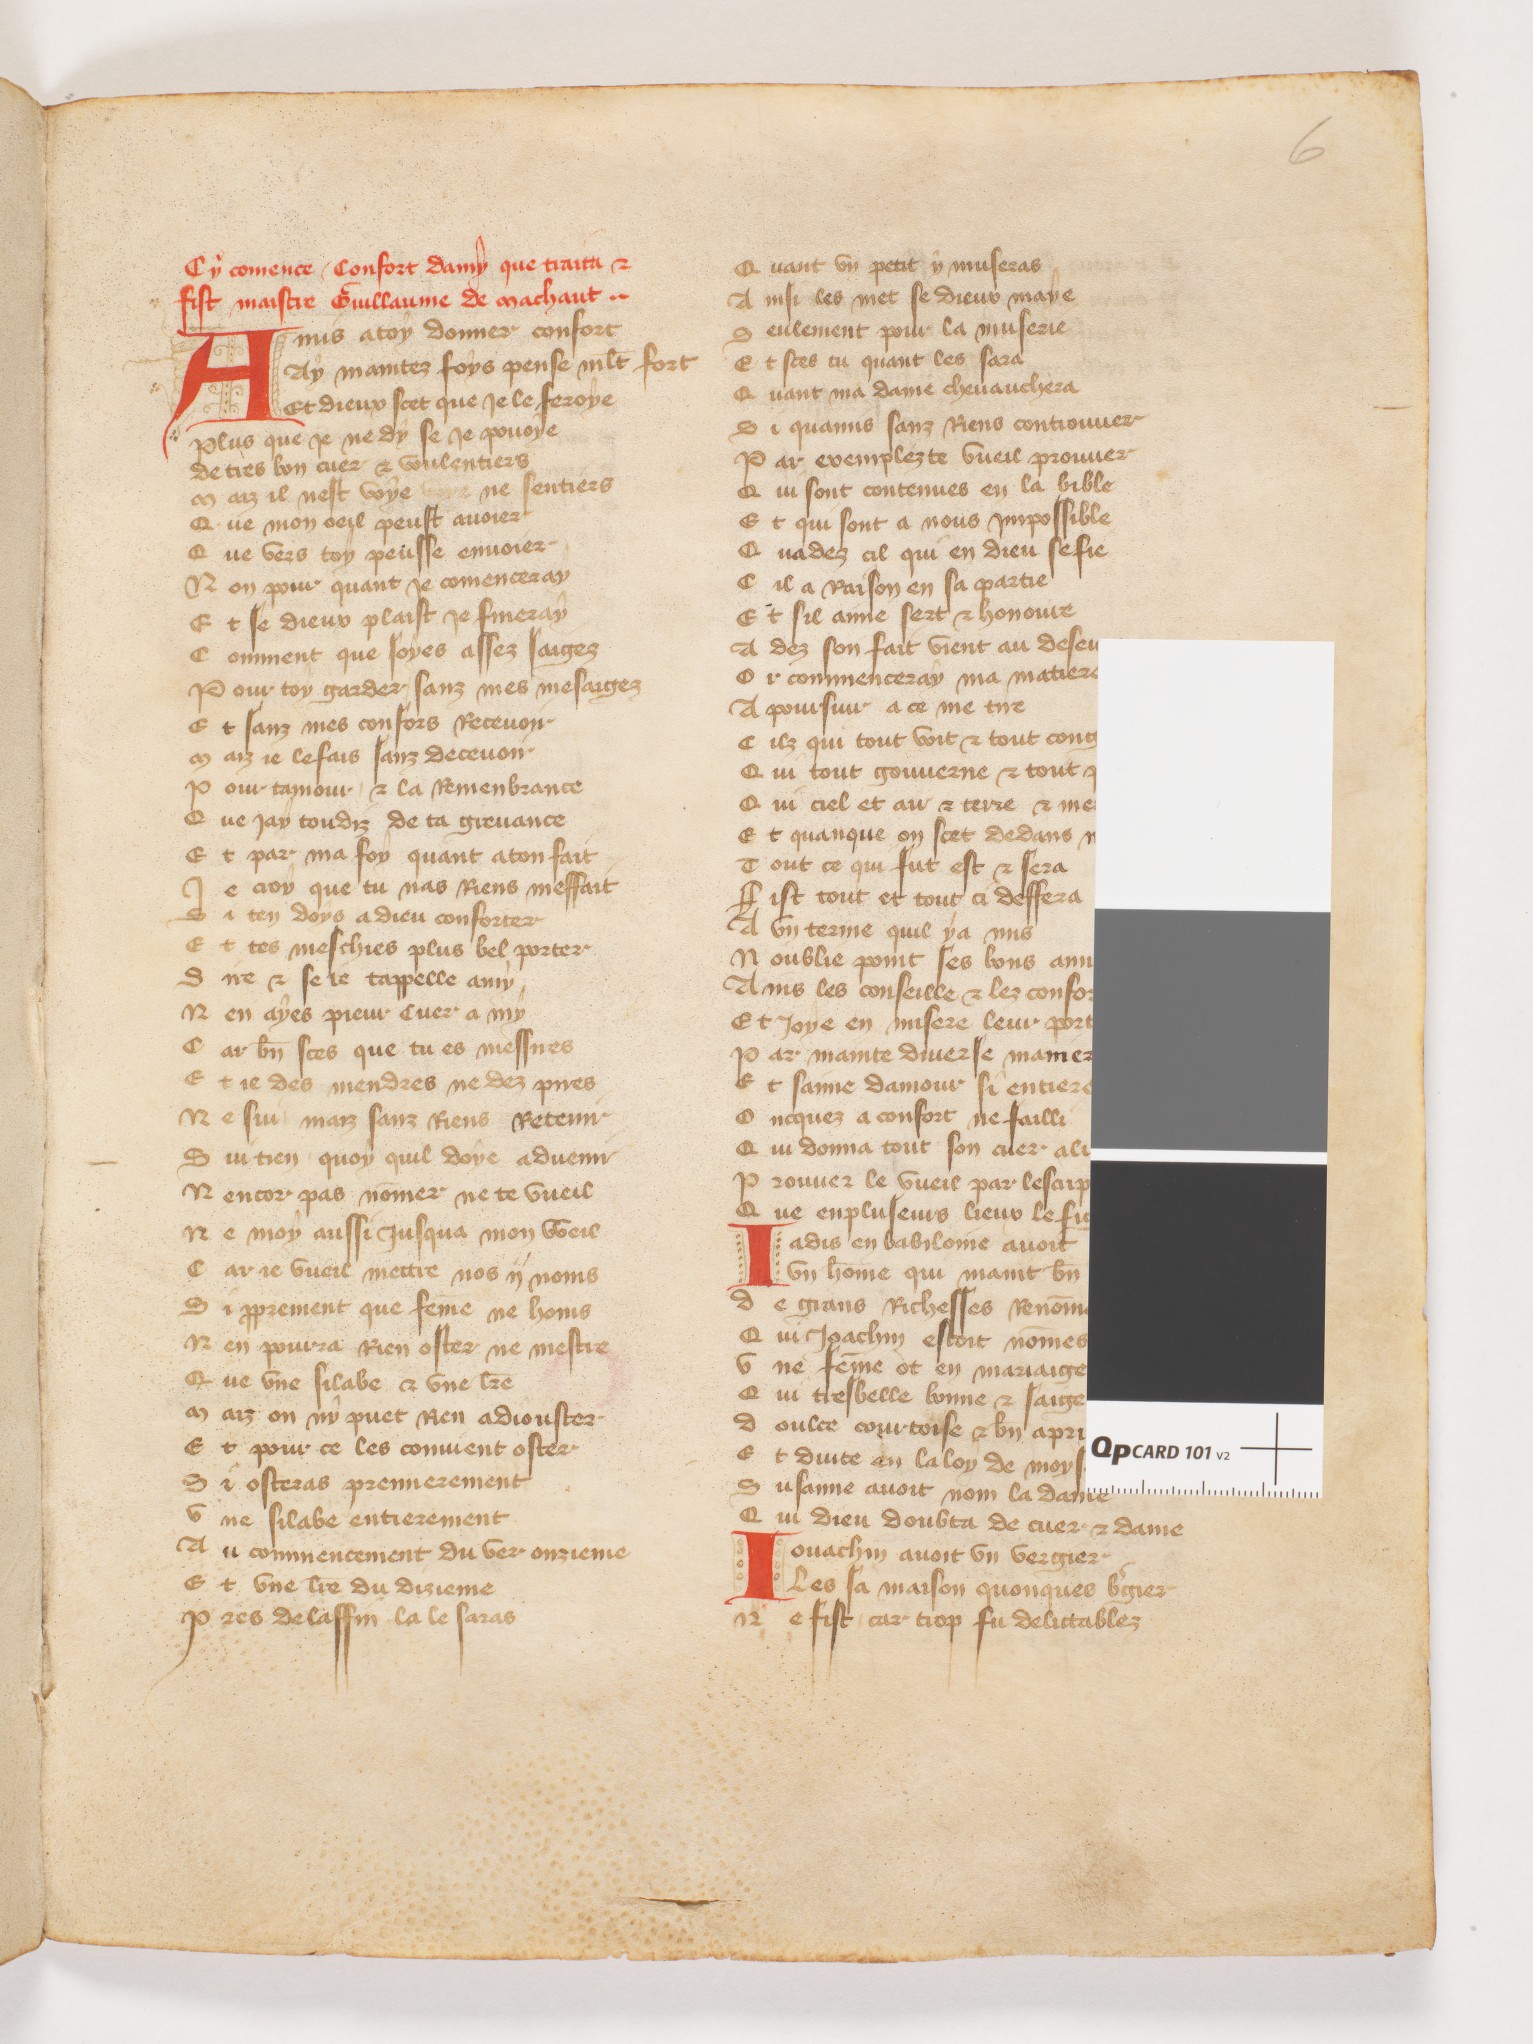 6
Cy comence Confort damy que traita ⁊
fist maistre Guillaume de machaut ..
Amis atoy donner confort
Ay maintez foys pense mlt fort
Et dieux scet que je le feroye
plus que je ne dy se je povoye
de tres bon cuer ⁊ voulentiers
maiz il nest voye ne sentiers
Que mon oeil peust avoier
Que vers toy peusse envoier
Non pour quant je comenceray
Et se dieux plaist je fineray
Comment que soyes assez saigez
Pour toy garder sanz mes mesaigez
Et sanz mes confors Recevoir
maiz ie lefais sanz decevoir
Pour tamour ⁊ la Remenbrance
Que jay toudiz de ta grevance
Et par ma foy quant aton fait
Je croy que tu nas Riens meffait
Si ten doys adieu conforter
Et tes meschies plus bel porter
Sire ⁊ se ie tappelle amy
Nen ayes pieur Cuer a my
Car bn sces que tu es messires
Et ie des mendres ne dez pires
Ne sui maiz sanz Riens Retenir
Sui tien quoy quil doye advenir
Nencor pas nomer ne te vueil
Ne moy aussi Jusqua mon weil
Car ie vueil mettre nos ij noms
Si pprement que feme ne homs
Nen pourra Rien oster ne mestre
Que vne silabe ⁊ vne lre
maiz on ny puet Rien adiouster
Et pour ce les convient oster
Si osteras premierement
Vne silabe entierement
Au commencement du ver onzieme
Et vne lre du dizieme
Pres delaffin la le saras
Quant vn petit y museras
Ainsi les met se dieux maye
Seulement pour la muserie
Et sces tu quant les sara
Quant ma dame chevauchera
Si quamis sanz Riens controuver
Par exemplez te vueil prouver
Qui sont contenues en la bible
Et qui sont a nous jmpossible
Quadez cil qui en dieu se fie
Cil a Raison en sa partie
Et sil aime sert ⁊ honoure
Adez son fait vient au deseu
Or commenceray ma matiere
A poursuir a ce me tire
Cilz qui tout voit ⁊ tout cong
Qui tout gouverne ⁊ tout
Qui ciel et air ⁊ terre ⁊ me
Et quanque on scet dedans
Tout ce qui fut est ⁊ sera
Fist tout et tout ci deffera
A vn terme quil ya mis
Noublie point ses bons ami
Ains les conseille ⁊ lez confor
Et Joye en misere leur port
Par mainte diverse manier
Et saime damour si entiere
Oncquez a confort ne failli
Qui donna tout son cuer ali
Prouver le vueil par lescrip
Que enpluseurs lieux le fi
Iadis en babiloine avoit
Vn home qui maint bn
de grans Richesses Renome
Qui Joachin estoit nomes
Vne feme ot en mariaige
Qui tresbelle bonne ⁊ saige
doulce courtoise ⁊ bn apri
Et duite en laloy de moys
Susanne avoit nom la dame
Qui dieu doubta de cuer ⁊ dame
Iouachin avoit vn vergier
Les sa maison quonques bgier
Ne fist car trop fu delitablez
QPCARD 101 v2